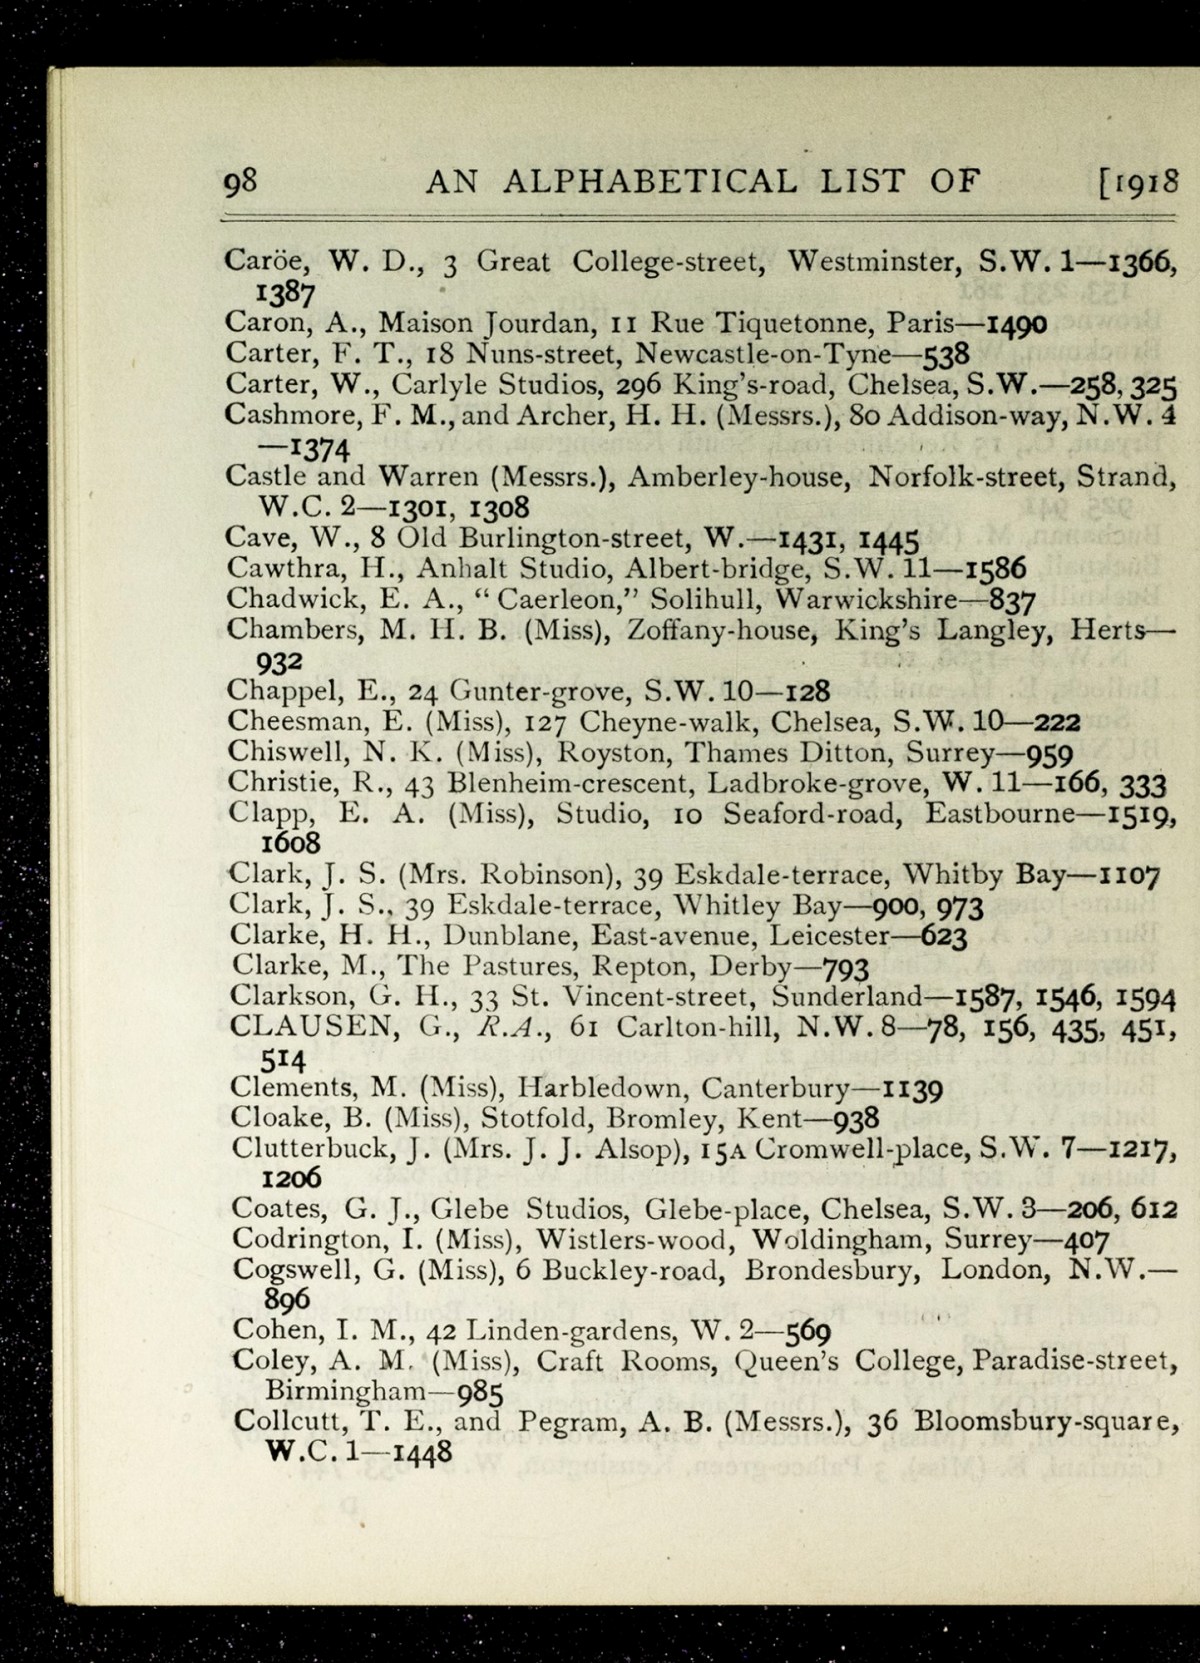 98 AN ALPHABETICAL LIST OF [1918
Caröe, W. D., 3 Great College-street, Westminster, S.W. 1—1366,
1387
Caron, A., Maison Jourdan, 11 Rue Tiquetonne, Paris—1490
Carter, F. T., 18 Nuns-street, Newcastle-on-Tyne—538
Carter, W., Carlyle Studios, 296 King's-road, Chelsea, S.W.—258, 325
Cashmore, F. M., and Archer, H. H. (Messrs.), 80 Addison-way, N.W. 4
—1374
Castle and Warren (Messrs.), Amberley-house, Norfolk-street, Strand,
W.C. 2—1301, 1308
Cave, W., 8 Old Burlington-street, W.—1431, 1445
Cawthra, H., Anhalt Studio, Albert-bridge, S.W. 11—1586
Chadwick, E. A., “Caerleon,” Solihull, Warwickshire—837
Chambers, M. H. B. (Miss), Zoffany-house, King's Langley, Herts—
932
Chappel, E., 24 Gunter-grove, S.W. 10—128
Cheesman, E. (Miss), 127 Cheyne-walk, Chelsea, S.W. 10—222
Chiswell, N. K. (Miss), Royston, Thames Ditton, Surrey—959
Christie, R., 43 Blenheim-crescent, Ladbroke-grove, W. 11—166, 333
Clapp, E. A. (Miss), Studio, 10 Seaford-road, Eastbourne—1519,
1608
Clark, J. S. (Mrs. Robinson), 39 Eskdale-terrace, Whitby Bay—1107
Clark, J. S., 39 Eskdale-terrace, Whitley Bay—900, 973
Clarke, H. H., Dunblane, East-avenue, Leicester—623
Clarke, M., The Pastures, Repton, Derby—793
Clarkson, G. H., 33 St. Vincent-street, Sunderland—1587, 1546, 1594
CLAUSEN, G., R.A., 61 Carlton-hill, N.W. 8—78, 156, 435, 451,
514
Clements, M. (Miss), Harbledown, Canterbury—1139
Cloake, B. (Miss), Stotfold, Bromley, Kent—938
Clutterbuck, J. (Mrs. J. J. Alsop), 15A Cromwell-place, S.W. 7—1217,
1206
Coates, G. J., Glebe Studios, Glebe-place, Chelsea, S.W. 3—206, 612
Codrington, I. (Miss), Wistlers-wood, Woldingham, Surrey—407
Cogswell, G. (Miss), 6 Buckley-road, Brondesbury, London, N.W.—
896
Cohen, I. M., 42 Linden-gardens, W. 2—569
Coley, A. M. (Miss), Craft Rooms, Queen's College, Paradise-street,
Birmingham—985
Collcutt, T. E., and Pegram, A. B. (Messrs.), 36 Bloomsbury-square,
W.C. 1—1448